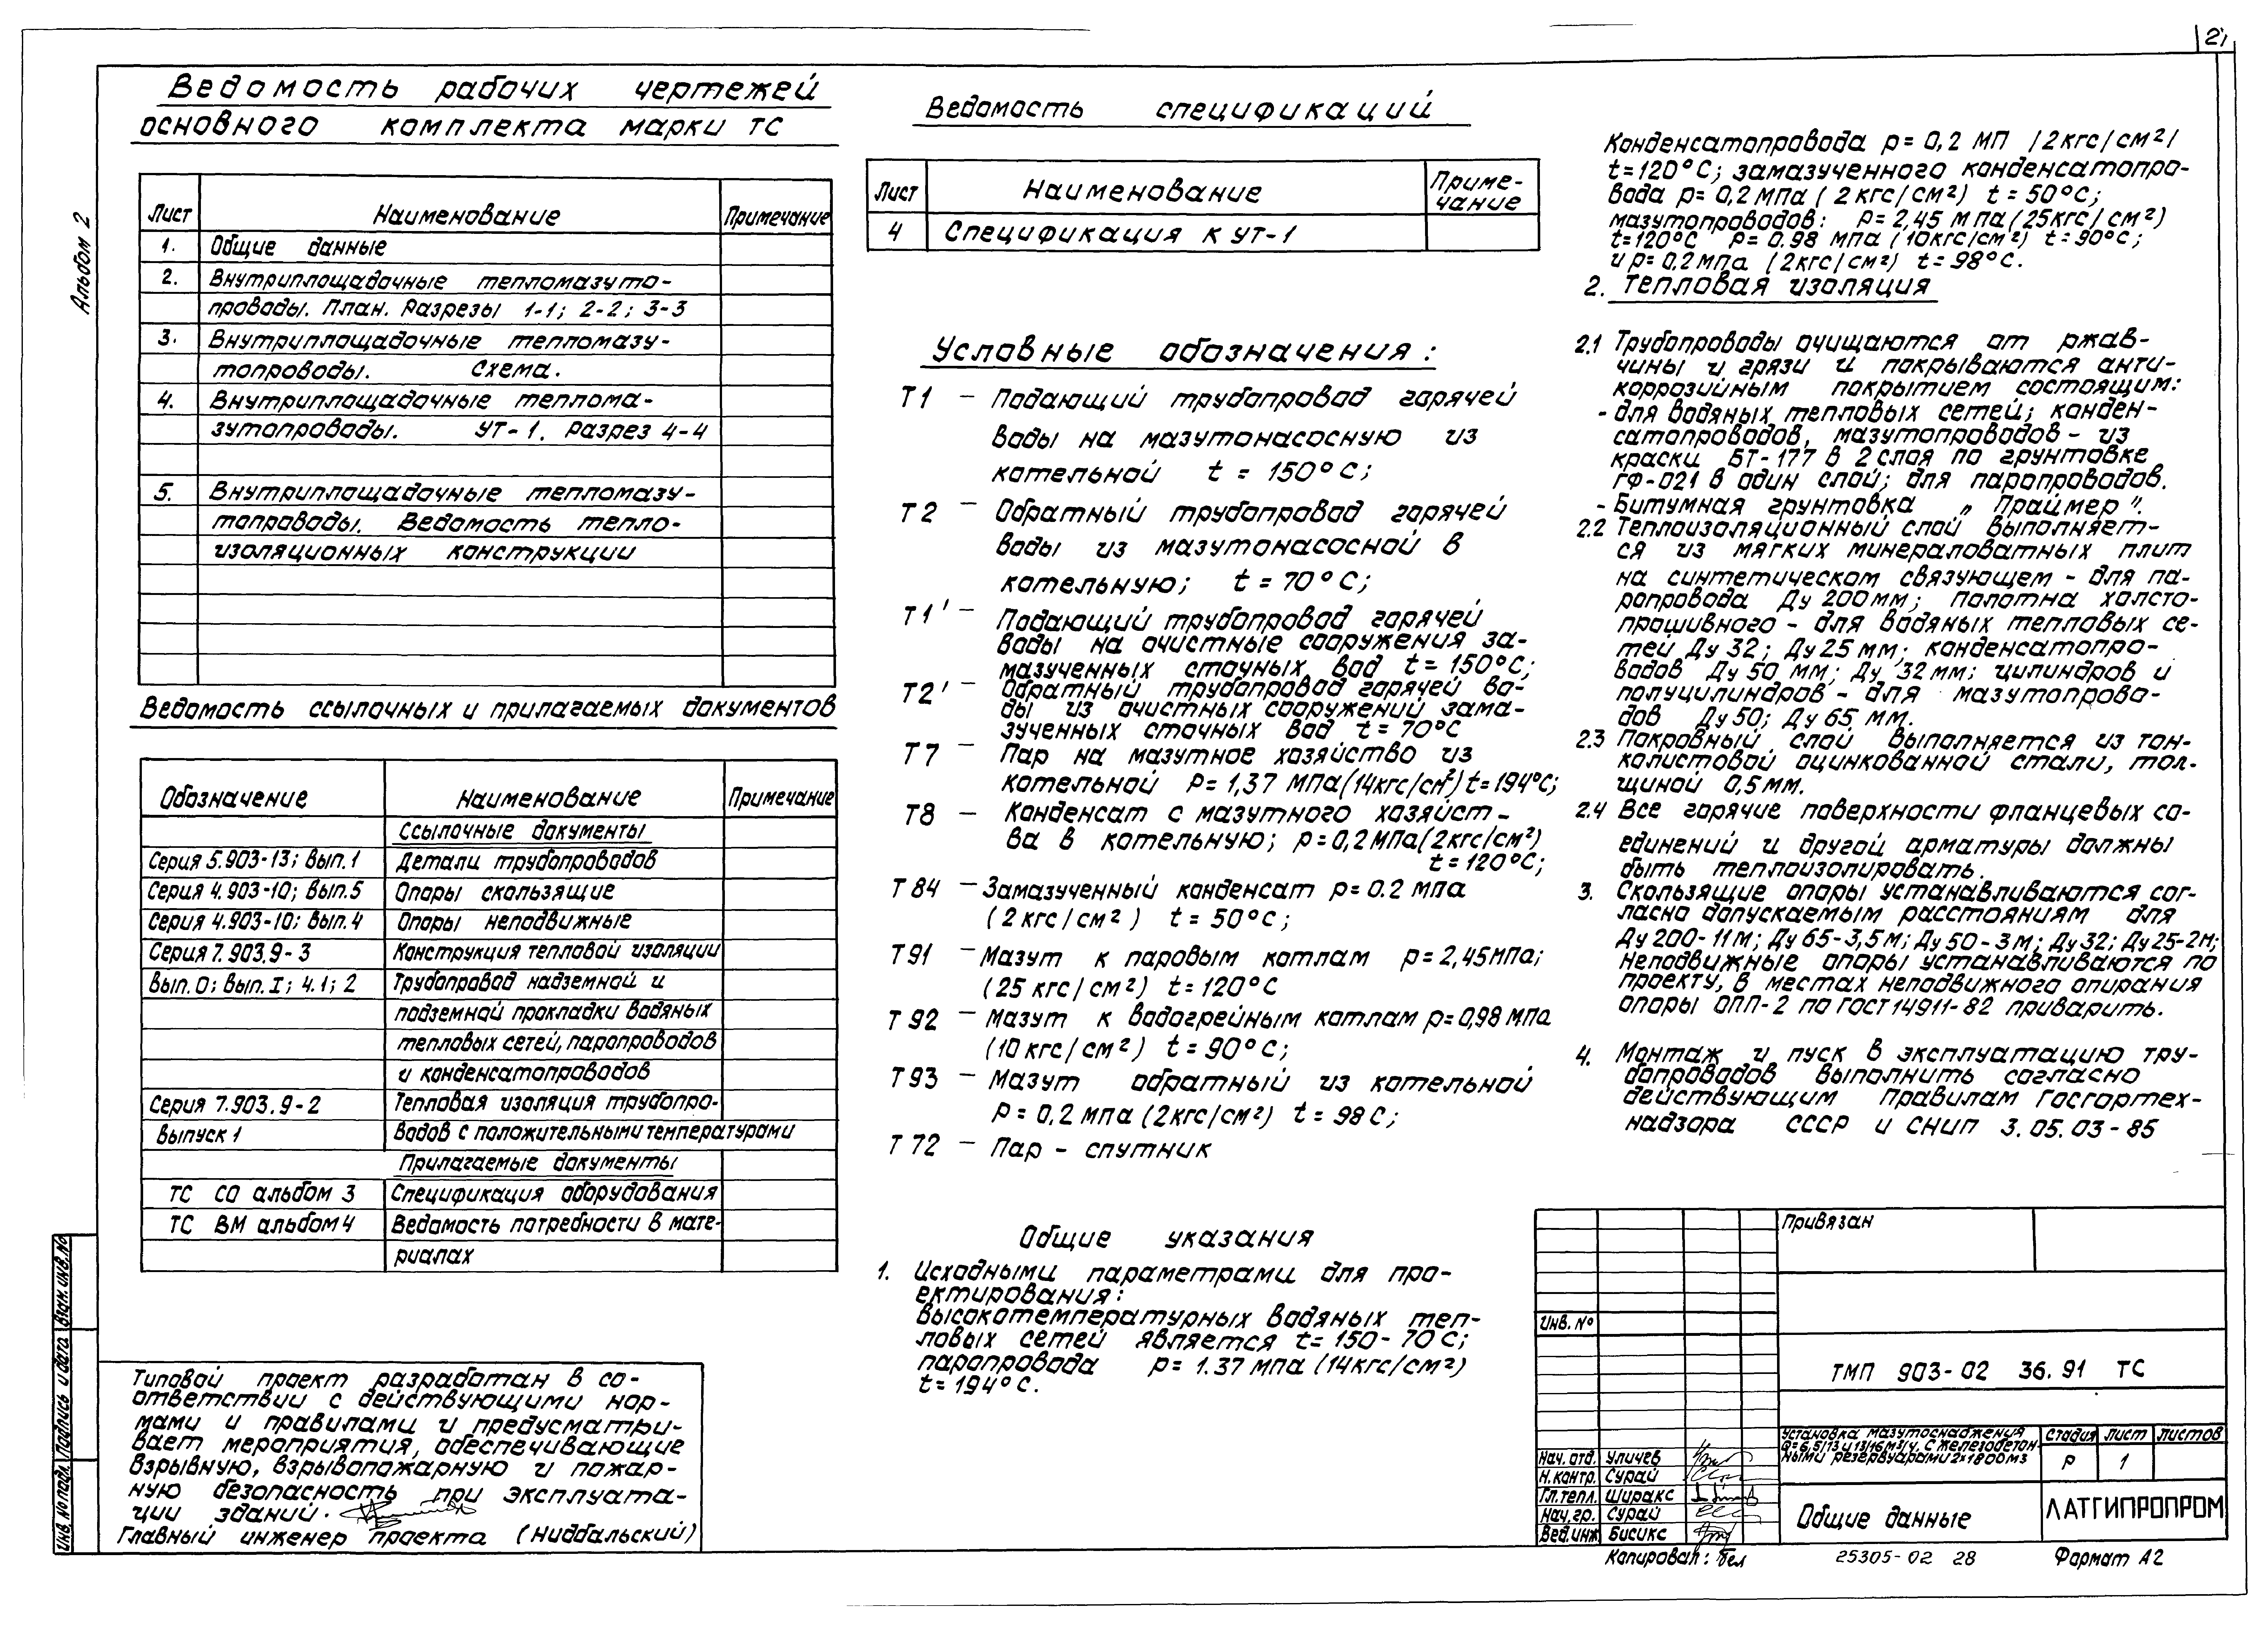 2
Альбом 2
Ведомость рабочих чертежей
основного комплекта марки ТС
Лист Наименование Примечание
1. Общие данные
2. Внутриплощадочные тепломазуто-
проводы. План. Разрезы 1-1; 2-2; 3-3
3. Внутриплощадочные тепломазу-
топроводы. Схема.
4. Внутриплощадочные теплома-
зутопроводы. УТ-1. Разрез 4-4
5. Внутриплощадочные тепломазу-
топроводы. Ведомость тепло-
изоляционных конструкции
Ведомость ссылочных и прилагаемых документов
Обозначение Наименование Примечание
Ссылочные документы
Серия 5.903-13; вып.1 Детали трубопроводов
Серия 4.903-10; вып.5 Опоры скользящие
Серия 4.903-10; вып.4 Опоры неподвижные
Серия 7.903.9-3 Конструкция тепловой изоляции
Вып.0; Вып.I; ч.1; 2 Трубопровод надземной и
подземной прокладки водяных
тепловых сетей, паропроводов
и конденсатопроводов
Серия 7.903.9-2 Тепловая изоляция трубопро-
выпуск 1 водов с положительными температурами
Прилагаемые документы
ТС СО альбом 3 Спецификация оборудования
ТС ВМ альбом 4 Ведомость потребности в мате-
риалах
Типовой проект разработан в со-
ответствии с действующими нор-
мами и правилами и предусматри-
вает мероприятия, обеспечивающие
взрывную, взрывопожарную и пожар-
ную безопасность при эксплуата-
ции зданий.
Главный инженер проекта (Нидбальский)
Инв. № подл. Подпись и дата Взам. инв. №
Ведомость спецификаций
Лист Наименование Приме-
чание
4 Спецификация к УТ-1
Условные обозначения:
Т1 – Подающий трубопровод горячей
воды на мазутонасосную из
котельной t = 150°С;
Т2 – Обратный трубопровод горячей
воды из мазутонасосной в
котельную; t = 70°С;
Т1' – Подающий трубопровод горячей
воды на очистные сооружения за-
мазученных сточных вод t = 150°С;
Т2' – Обратный трубопровод горячей во-
ды из очистных сооружений зама-
зученных сточных вод t = 70°С
Т7 – Пар на мазутное хозяйство из
котельной Р = 1,37 МПа (14кгс/см²) t = 194°С;
Т8 – Конденсат с мазутного хозяйст-
ва в котельную; р = 0,2 МПа (2кгс/см²)
t = 120°С;
Т84 – Замазученный конденсат р = 0.2 мпа
(2 кгс/см²) t = 50°С;
Т91 – Мазут к паровым котлам р = 2,45мпа;
(25 кгс/см²) t = 120°С
Т92 – Мазут к водогрейным котлам р = 0,98 МПа
(10 кгс/см²) t = 90°С;
Т93 – Мазут обратный из котельной
Р = 0,2 мпа (2кгс/см²) t = 98 С;
Т72 – Пар - спутник
Общие указания
1. Исходными параметрами для про-
ектирования:
высокотемпературных водяных теп-
ловых сетей является t = 150-70 С;
паропровода р = 1.37 мпа (14кгс/см²)
t = 194°С.
Конденсатопровода р = 0,2 МП /2кгс/см²/
t = 120°С; замазученного конденсатопро-
вода р = 0,2 мпа (2 кгс/см²) t = 50°С;
мазутопроводов: р = 2,45 мпа (25кгс/см²)
t = 120°С р = 0.98 мпа (10кгс/см²) t = 90°С;
и р = 0,2 мпа (2кгс/см²) t = 98°С.
2. Тепловая изоляция
2.1 Трубопроводы очищаются от ржав-
чины и грязи и покрываются анти-
коррозийным покрытием состоящим:
- для водяных тепловых сетей; конден-
сатопроводов, мазутопроводов - из
краски БТ-177 в 2 слоя по грунтовке
ГФ-021 в один слой; для паропроводов.
- Битумная грунтовка „Праймер".
2.2 Теплоизоляционный слой выполняет-
ся из мягких минераловатных плит
на синтетическом связующем - для па-
ропровода Ду 200 мм; полотна холсто-
прошивного - для водяных тепловых се-
тей Ду 32; Ду 25 мм; конденсатопро-
водов Ду 50 мм; Ду 32 мм; цилиндров и
полуцилиндров - для мазутопрово-
дов Ду 50; Ду 65 мм.
2.3 Покровный слой выполняется из тон-
колистовой оцинкованной стали, тол-
щиной 0,5 мм.
2.4 Все горячие поверхности фланцевых со-
единений и другой арматуры должны
быть теплоизолировать.
3. Скользящие опоры устанавливаются сог-
ласно допускаемым расстояниям для
Ду 200-11м; Ду 65-3,5м; Ду 50-3м; Ду 32; Ду 25-2м;
Неподвижные опоры устанавливаются по
проекту, в местах неподвижного опирания
опоры ОПП-2 по ГОСТ 14911-82 приварить.
4. Монтаж и пуск в эксплуатацию тру-
бопроводов выполнить согласно
действующим Правилам Госгортех-
надзора СССР и СНИП 3.05.03-85
Привязан
Инв. №
ТМП 903-02 36.91 ТС
Установка мазутоснабжения
Q=6,5/13 и 13/16 м3/ч. с железобетон-
ными резервуарами 2×1800м3
Стадия Лист Листов
Р 1
Нач. отд. Уличев
Н.контр. Сурай
Гл.тепл. Ширакс
Нач.гр. Сурай
Вед.инж Бисикс
Общие данные
ЛАТГИПРОПРОМ
Копировал: Бел 25305-02 28 Формат А2